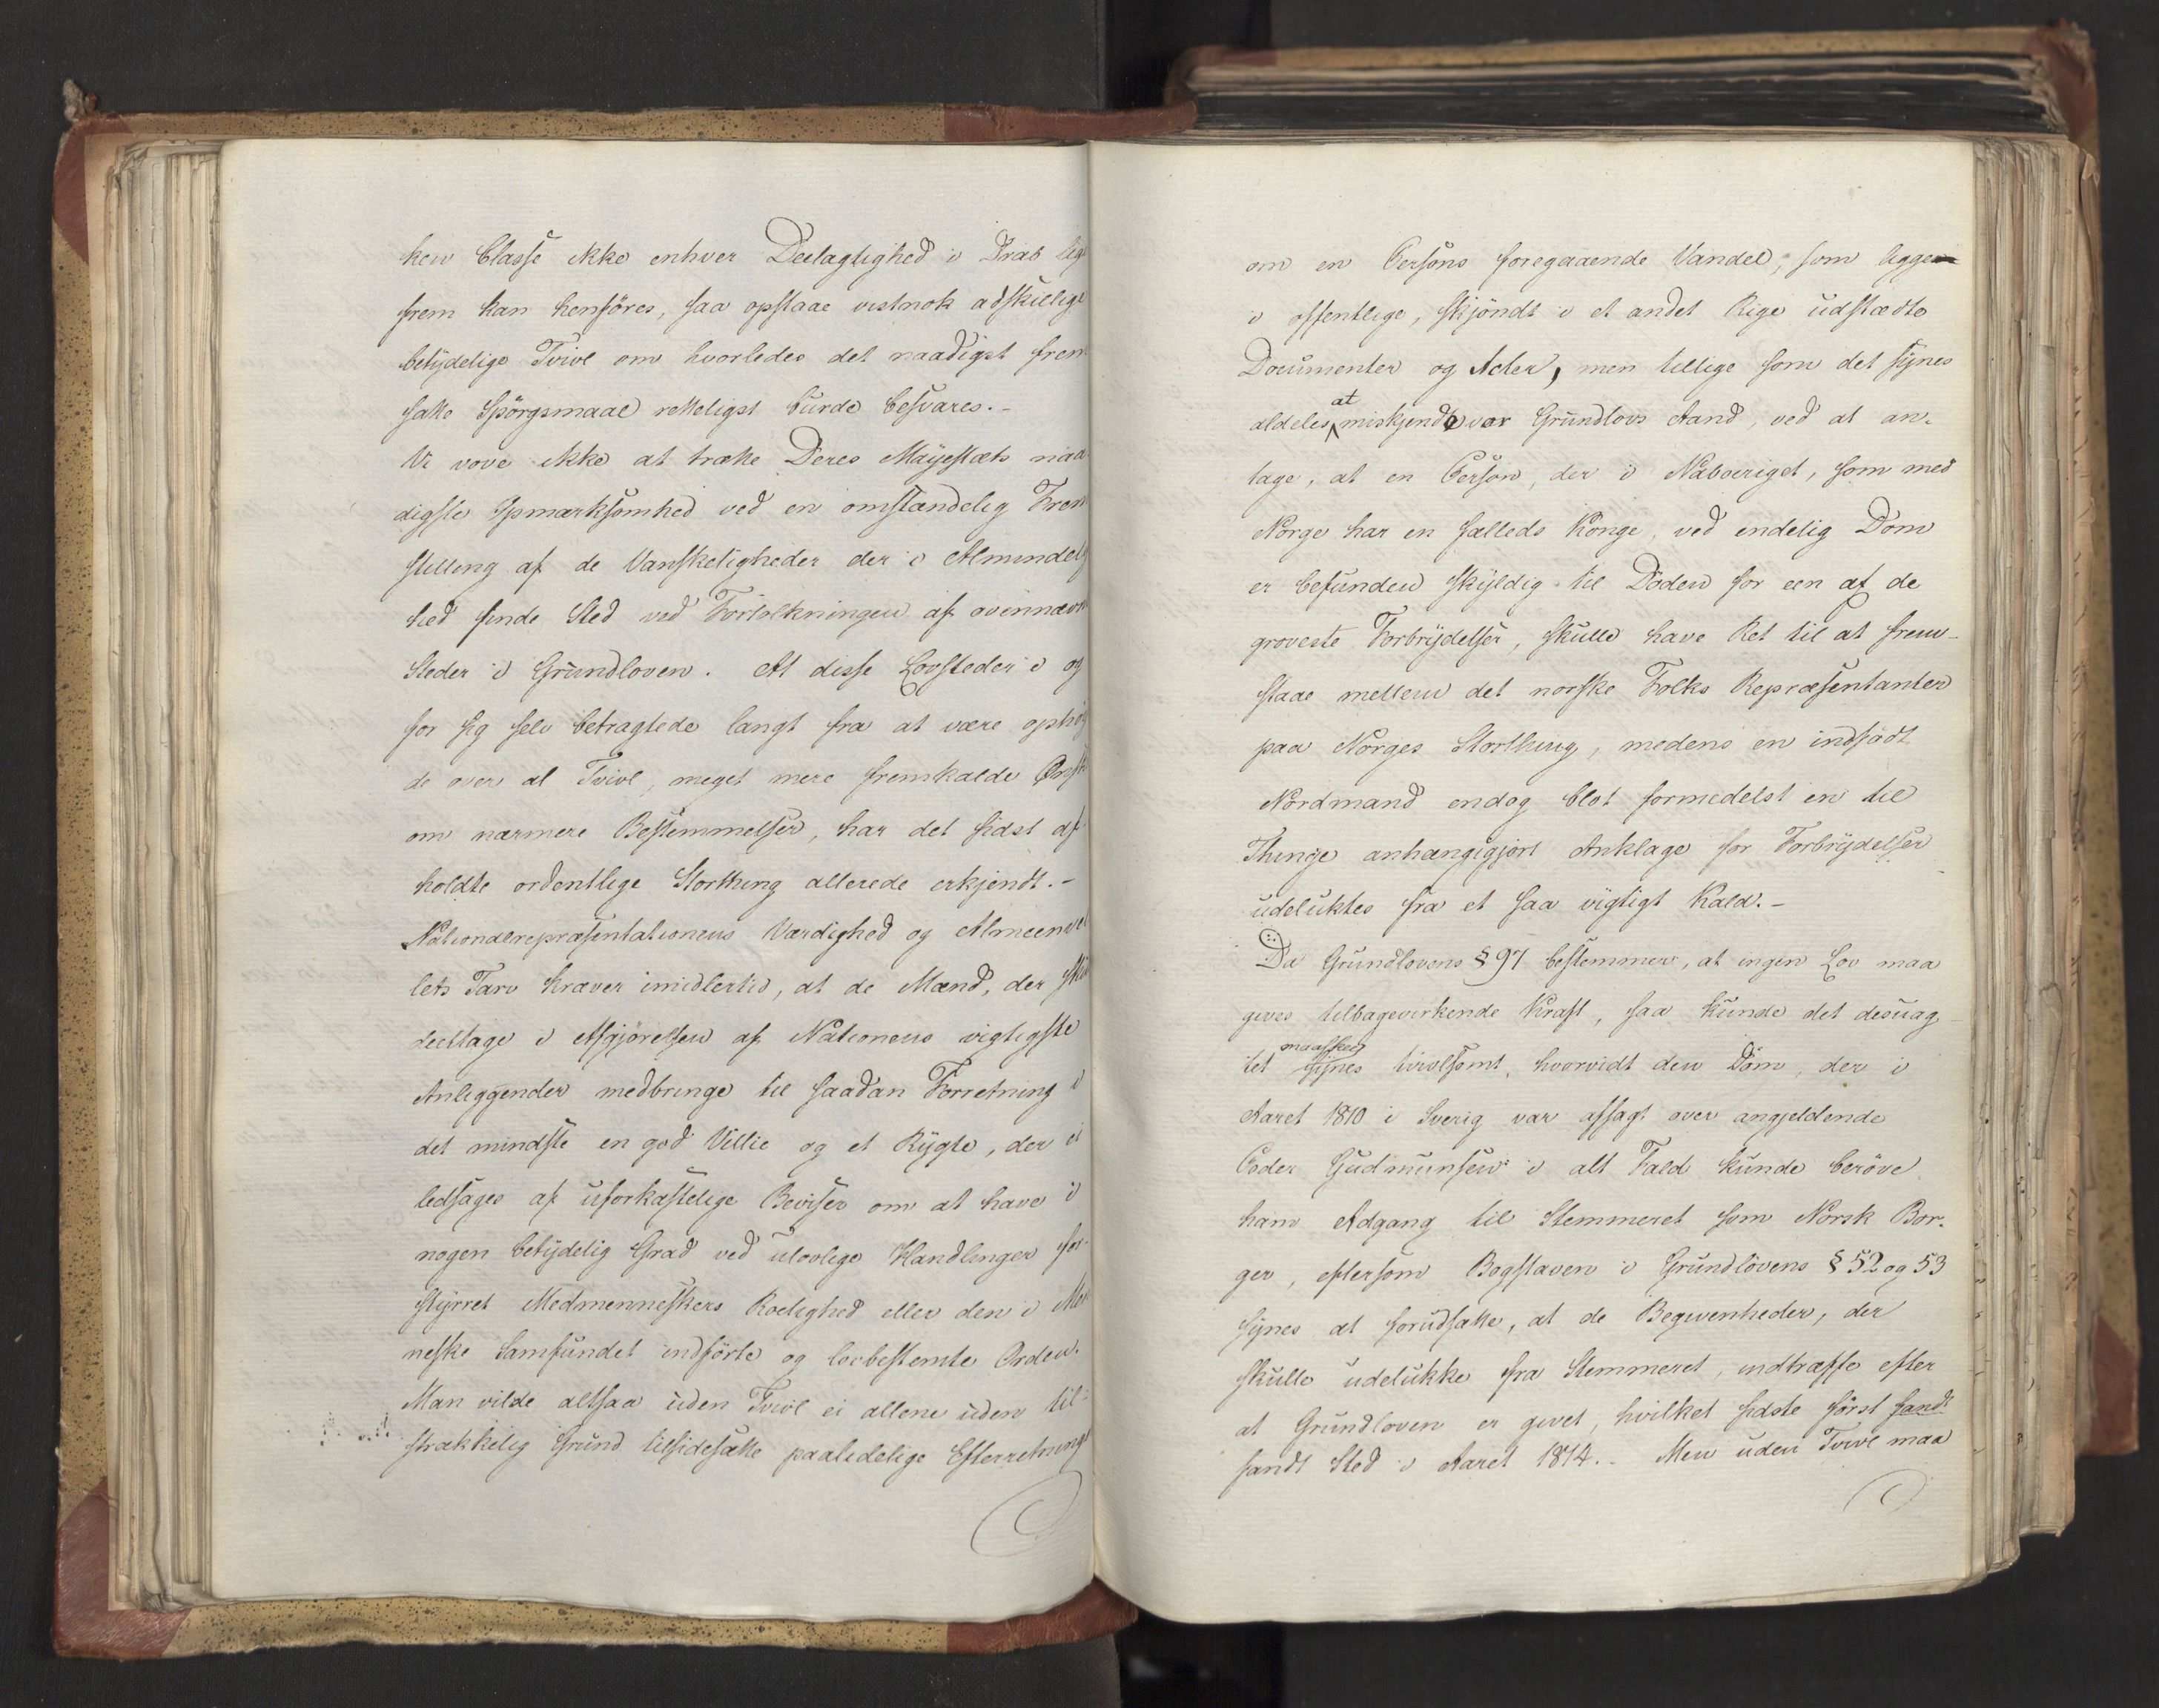 ken Classe ikke enhver Deelagtighed i Drab lige
frem kan henföres, saa opstaae vistnok adskillige
betÿdelige Tvivl om hvorledes det naadigst frem
satte Spörgsmaal retteligst burde besvares.-
Vi vove ikke at trætte Deres Maÿestæts naa
digste Opmærksomhed ved en omstændelig Frem
stilling af de Vanskeligheder der i Almindelig
hed finde Sted ved Fortolkningen af ovennævnte
Steder i Grundloven. At disse Lovsteder i og
for sig selv betragtede langt fra at være ophöi
de over al Tvivl, meget mere fremkalde Ønske
om nærmere Bestemmelser, har det sidst af
holdte ordentlige Storthing allerede erkjendt.-
Nationalrepræsentationens Værdighed og Almeenvel
lets Tarv kræver imidlertid, at de Mænd, der skulle
deeltage i Afgjörelsen af Nationens vigtigste
Anliggender medbringe til saadan Forretning i
det mindste en god Villie og et Rÿgte, der ei
ledsages af uforkastelige Beviser om at have i
nogen betÿdelig Grad ved ulovlige Handlinger for-
stÿrret Medmenneskers Roelighed eller den i Men
neske Samfundet indförte og lovbestemte Orden.
Man vilde altsaa uden Tvivl ei allene uden til-
strækkelig Grund tilsidesætte paalidelige Efterretninger
om en Persons foregaaende Vandel, som ligge
i offentlige, skjöndt i et andet Rige udstædte
Documenter og Acter, men tillige som det sÿnes
aldeles at miskjende vor Grundlovs Aand, ved at an-
tage, at en Person, der i Naboeriget, som med
Norge har en fælleds Konge, ved endelig Dom
er befunden skÿldig til Döden for een af de
groveste Forbrÿdelser, skulle have Ret til at frem-
staae mellem det norske Folks Repræsentanter
paa Norges Storthing, medens en indfödt
Nordmand endog blot formedelst en til
Thinge anhængigjört Anklage for Forbrÿdelser
udeluktes fra et saa vigtigt Kald.-
Da Grundlovens § 97 bestemmer, at ingen Lov maa
gives tilbagevirkende Kraft, saa kunde det desuag
tet maaskee sÿnes tvivlsomt, hvorvidt den Dom, der i
Aaret 1810 i Sverig var afsagt over angjeldende
Peder Gudmunsen i alt Fald kunde beröve
ham Adgang til Stemmeret som Norsk Bor-
ger, eftersom Bogstaven i Grundlovens § 52 og 53
sÿnes at forudsætte, at de Begivenheder, der
skulle udelukke fra Stemmeret, indtræffe efter
at Grundloven er givet, hvilket sidste först fandt
fandt Sted i Aaret 1814.- Men uden Tvivl maa